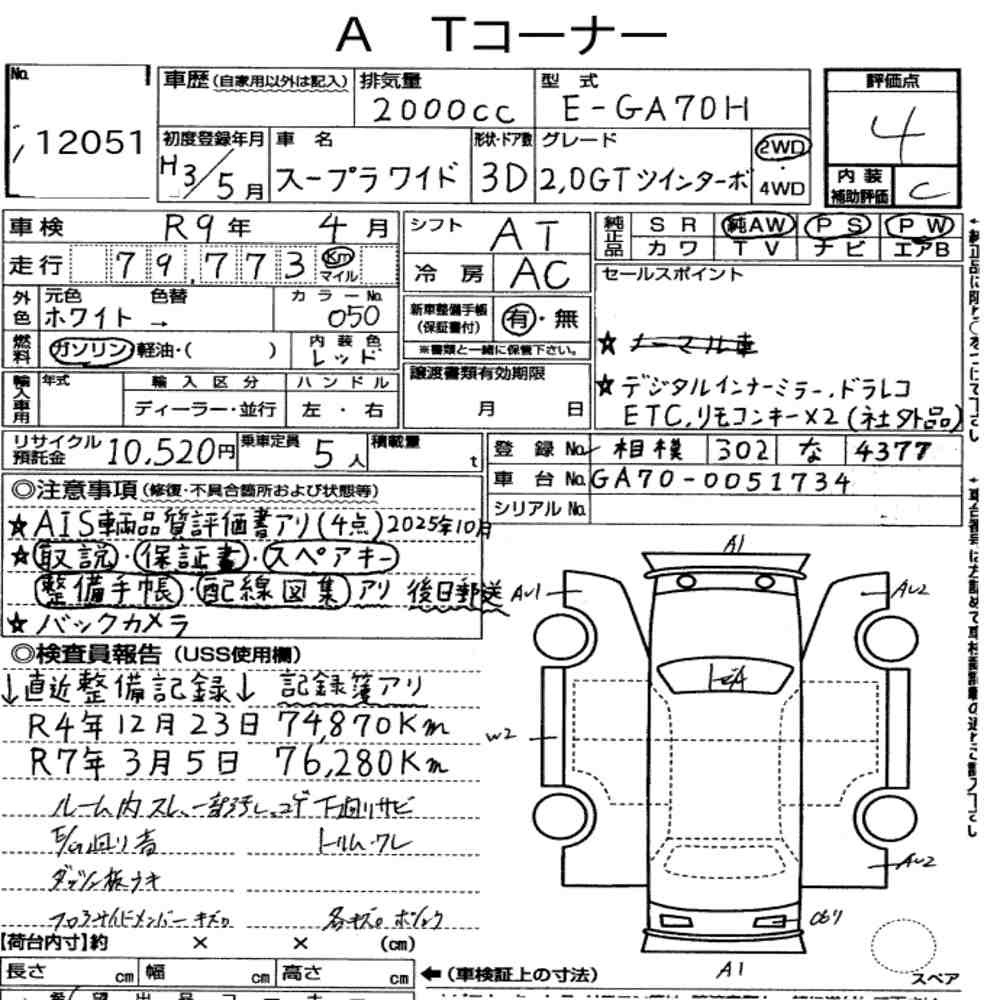 A Tコーナー
No. 12051
車歴(自家用以外は記入)
排気量 2000cc
型式 E-GA70H
評価点 4
初度登録年月 H3/5月
車名 スープラワイド
形状・ドア数 3D
グレード 2,0GTツインターボ
2WD・4WD
内装補助評価 C
車検 R9年 4月
シフト AT
純正品 SR 純AW PS PW
カワ TV ナビ エアB
走行 79,773 Km マイル
冷房 AC
セールスポイント
外色 元色 ホワイト → 色替 カラーNo. 050
新車整備手帳(保証書付) 有・無
※書類と一緒に保管下さい。
★ノーマル車
燃料 ガソリン 軽油・( )
内装色 レッド
譲渡書類有効期限 月 日
★デジタルインナーミラー、ドラレコ
ETC,リモコンキー×2(社外品)
輸入車用 年式 輸入区分 ハンドル
ディーラー・並行 左・右
リサイクル預託金 10,520円
乗車定員 5人
積載量 t
登録No. 相模 302 な 4377
車台No. GA70-0051734
シリアルNo.
◎注意事項(修復・不具合箇所および状態等)
★AIS車輌品質評価書アリ(4点)2025年10月
★取説・保証書・スペアキー
整備手帳・配線図集アリ 後日郵送
★バックカメラ
◎検査員報告(USS使用欄)
↓直近整備記録↓ 記録簿アリ
R4年12月23日 74,870Km
R7年3月5日 76,280Km
ルーム内スレ、一部汚レ、コゲ 下廻りサビ
E/G廻り音 トリム・ワレ
ダッシュ板ウキ
フロアサイドメンバーキズ
A1
AU1 AU2
W2
AU2
A1
【荷台内寸】約 × × (cm)
長さ cm 幅 cm 高さ cm
←(車検証上の寸法)
スペア